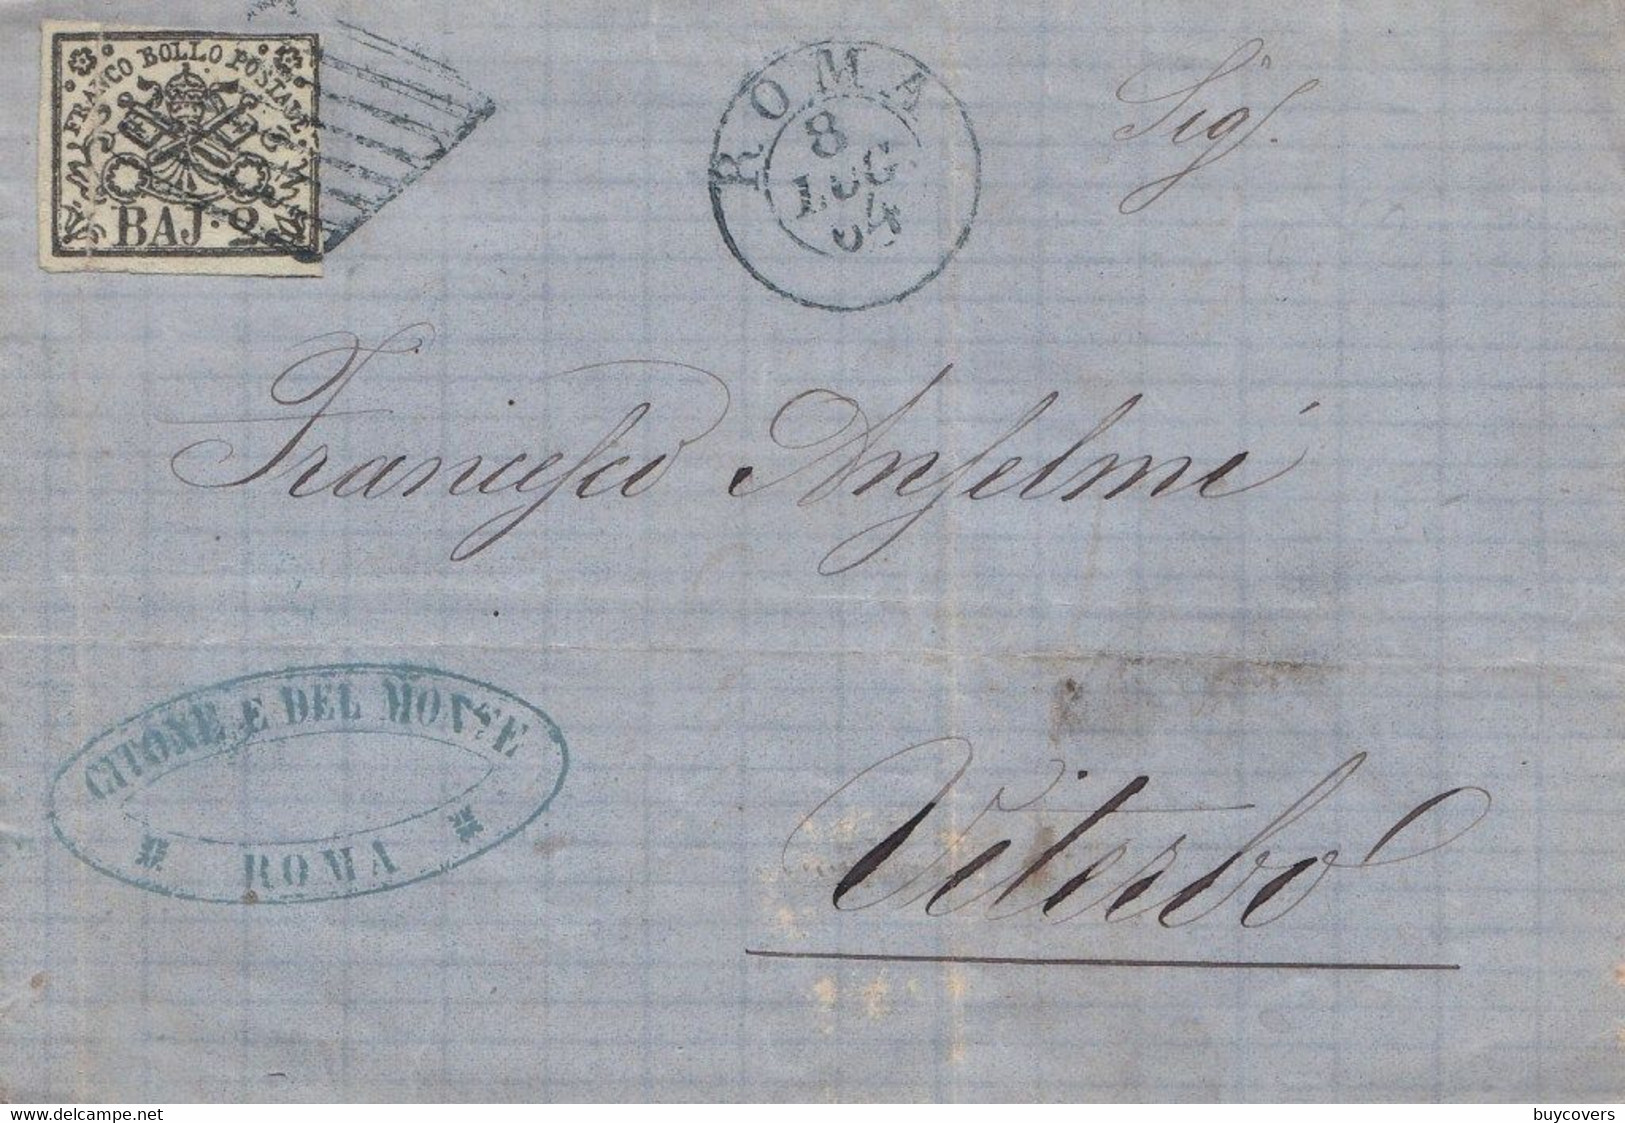 FRANCO BOLLO POSTALE
BAJ. 2
ROMA
8
LUG
64
Sig.r
Francesco Anselmi
CITONE E DEL MONTE
ROMA
Viterbo
buycovers